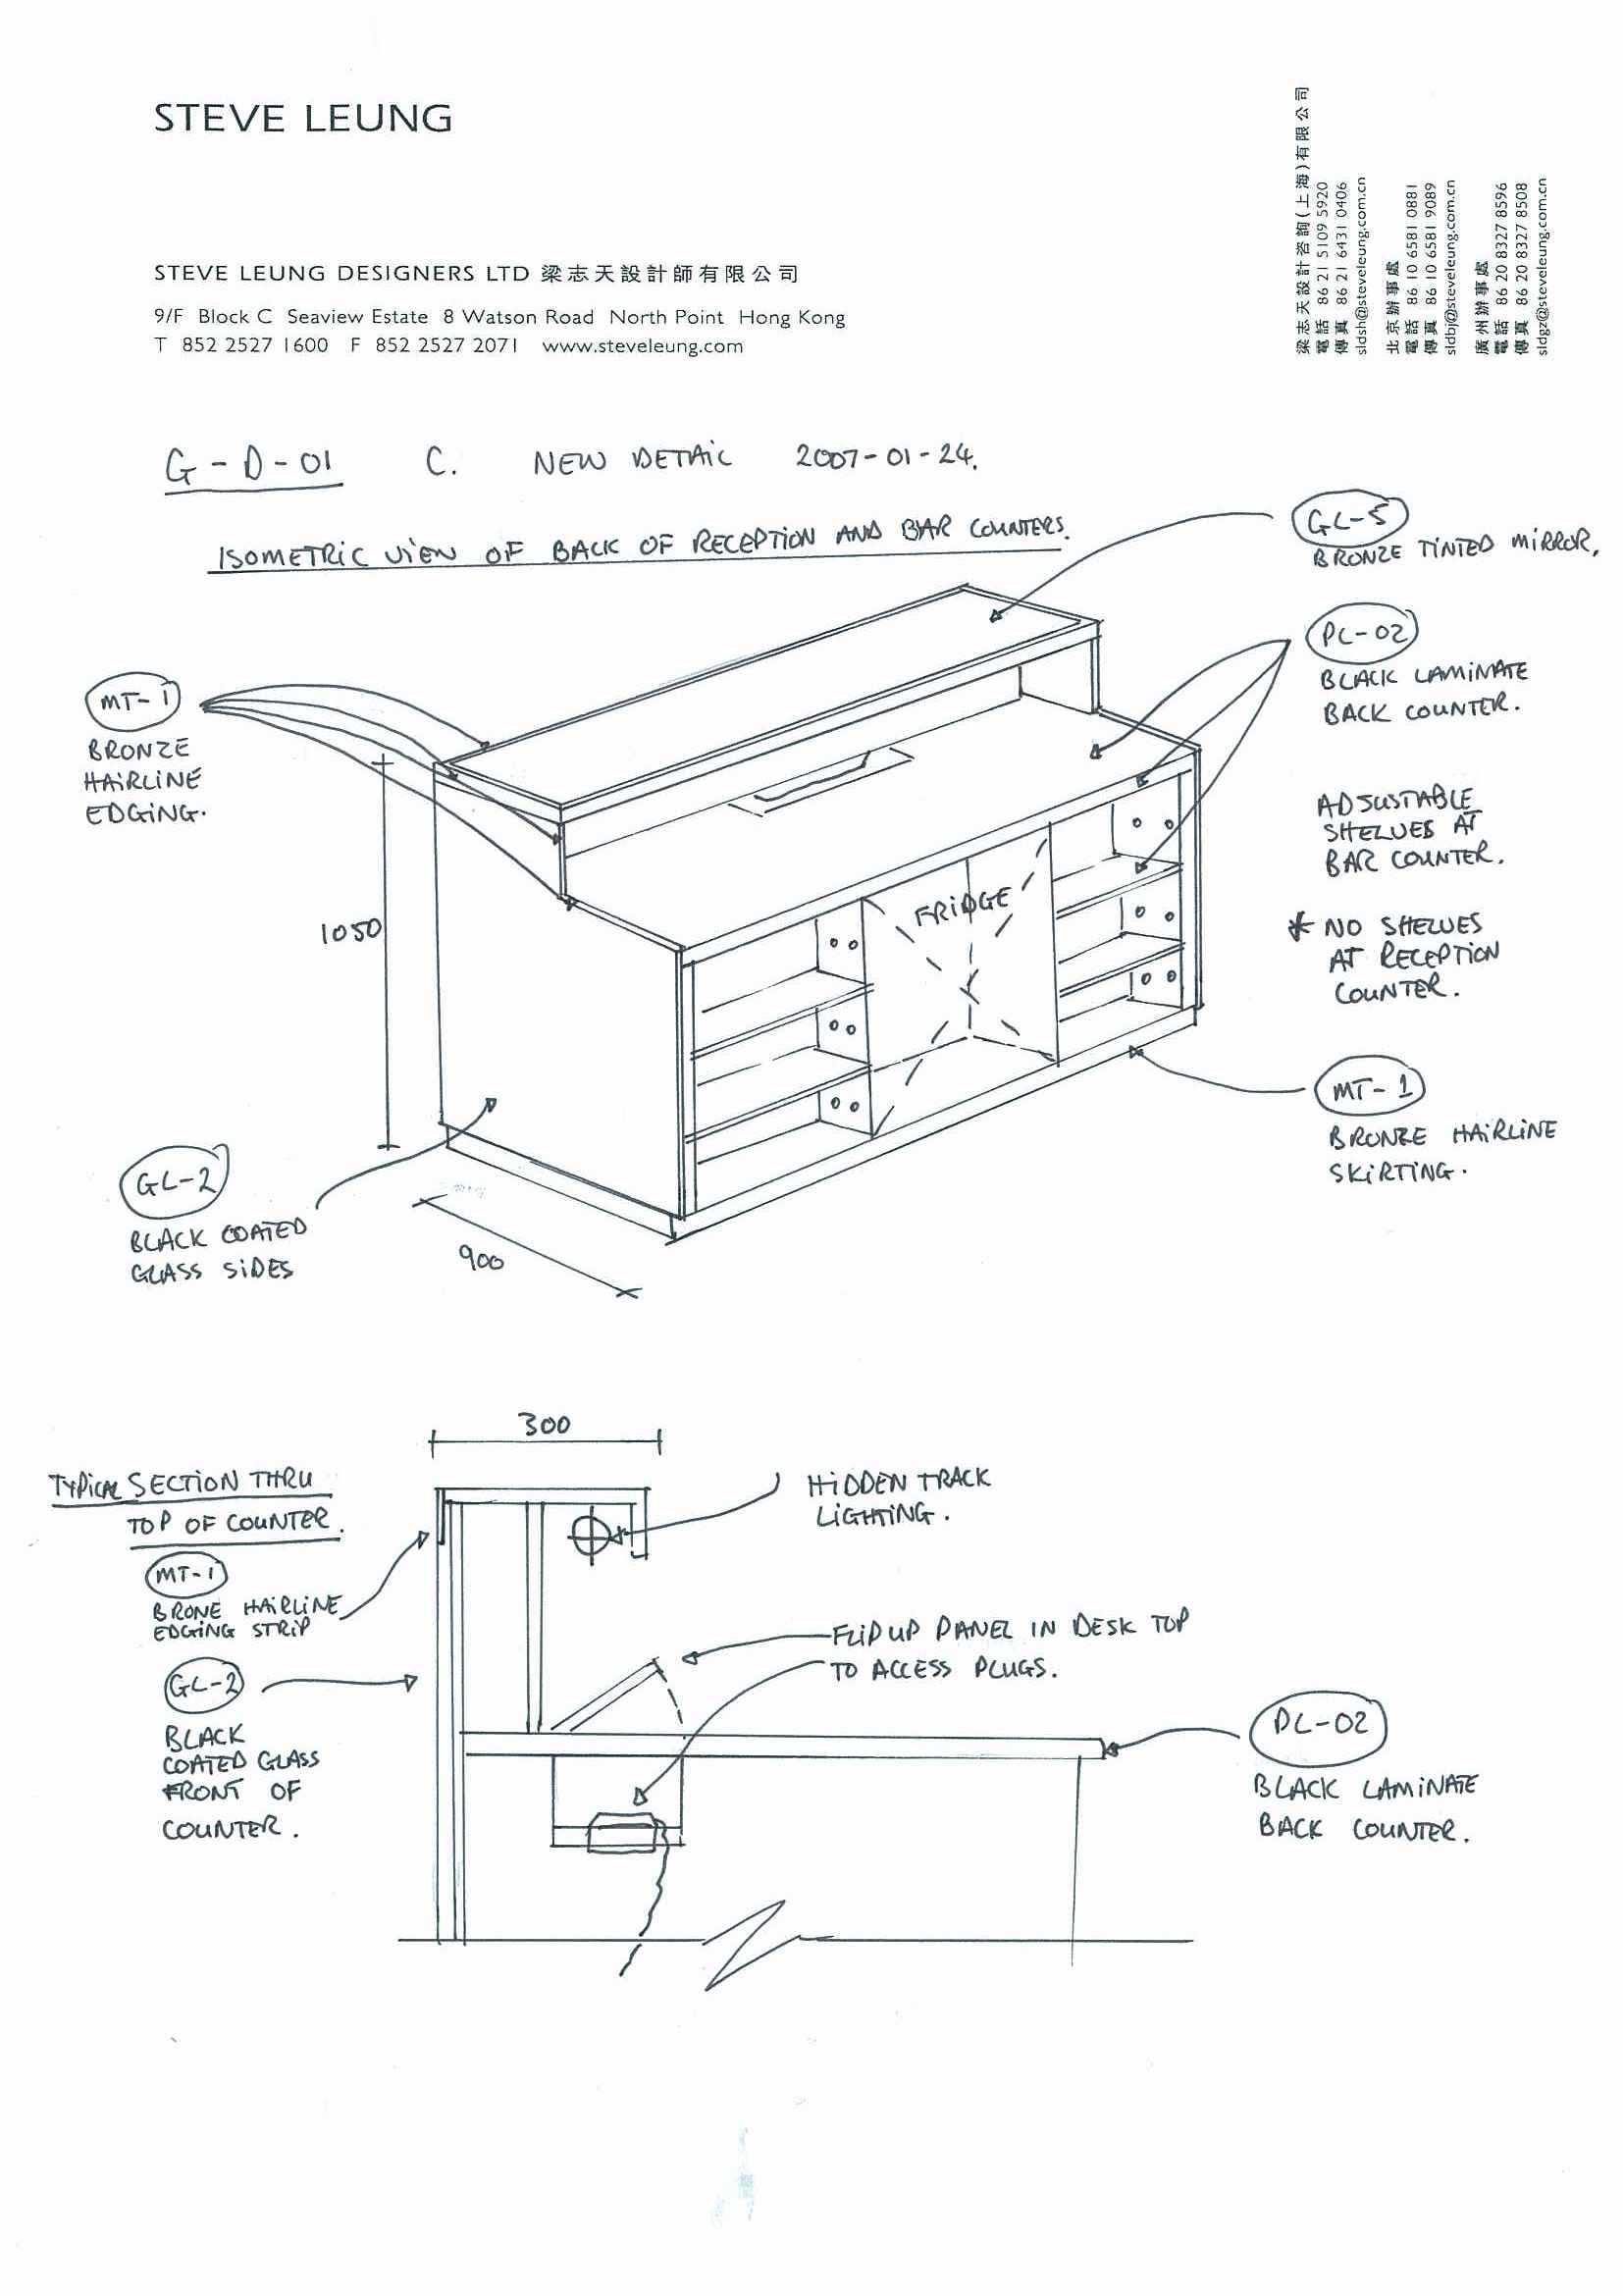 STEVE LEUNG
STEVE LEUNG DESIGNERS LTD 梁志天設計師有限公司
9/F Block C Seaview Estate 8 Watson Road North Point Hong Kong
T 852 2527 1600 F 852 2527 2071 www.steveleung.com
梁志天設計咨詢(上海)有限公司
電話 86 21 5109 5920
傳真 86 21 6431 0406
sldsh@steveleung.com.cn
北京辦事處
電話 86 10 6581 0881
傳真 86 10 6581 9089
sldbj@steveleung.com.cn
廣州辦事處
電話 86 20 8327 8596
傳真 86 20 8327 8508
sldgz@steveleung.com.cn
G-D-01 C. NEW DETAIL 2007-01-24.
ISOMETRIC VIEW OF BACK OF RECEPTION AND BAR COUNTERS.
GL-5
BRONZE TINTED MIRROR.
PL-02
BLACK LAMINATE
BACK COUNTER.
MT-1
BRONZE
HAIRLINE
EDGING.
ADJUSTABLE
SHELVES AT
BAR COUNTER.
* NO SHELVES
AT RECEPTION
COUNTER.
FRIDGE
1050
MT-1
BRONZE HAIRLINE
SKIRTING.
GL-2
BLACK COATED
GLASS SIDES
900
300
TYPICAL SECTION THRU
TOP OF COUNTER.
HIDDEN TRACK
LIGHTING.
MT-1
BRONE HAIRLINE
EDGING STRIP
FLIP UP PANEL IN DESK TOP
TO ACCESS PLUGS.
GL-2
BLACK
COATED GLASS
FRONT OF
COUNTER.
PL-02
BLACK LAMINATE
BACK COUNTER.